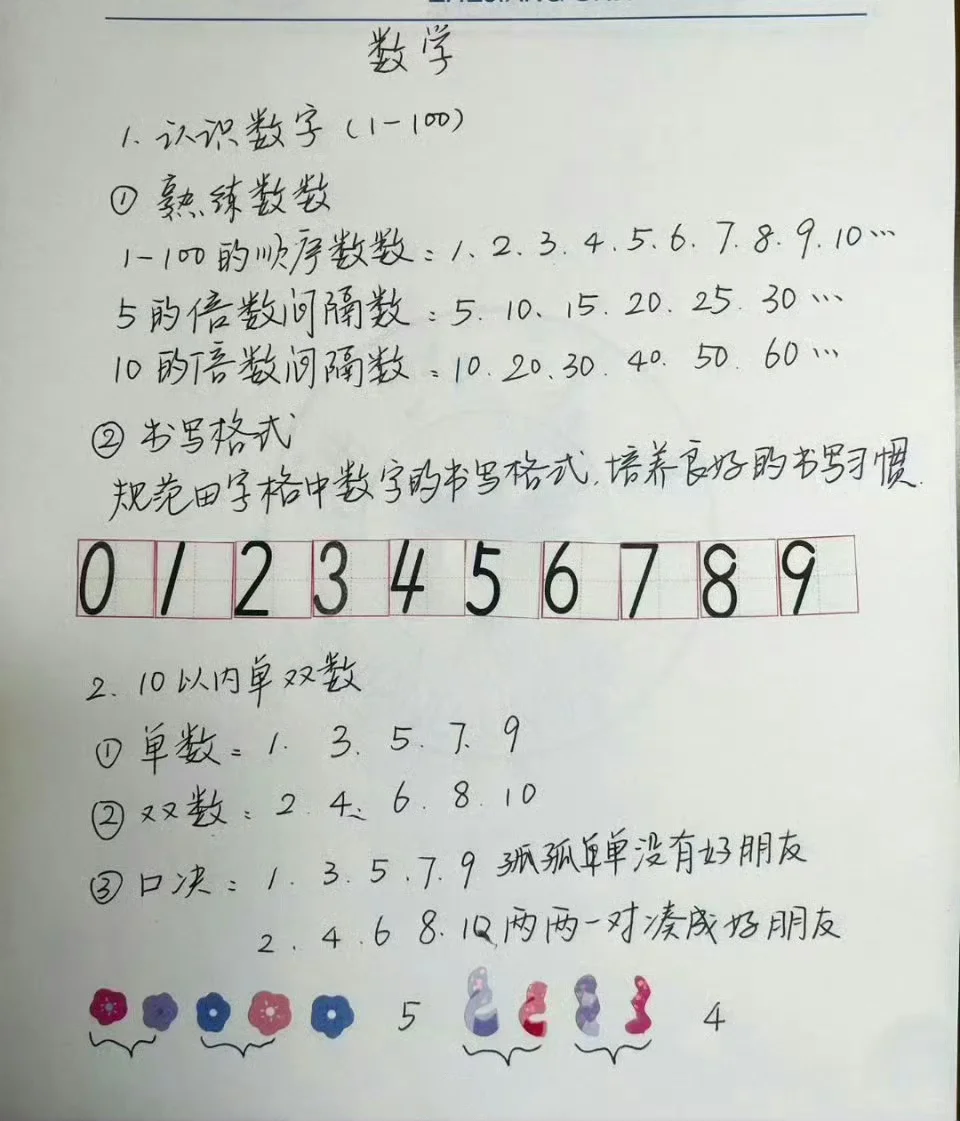 数学
1. 认识数字(1-100)
① 熟练数数
1-100的顺序数数：1、2、3、4、5、6、7、8、9、10…
5的倍数间隔数：5、10、15、20、25、30…
10的倍数间隔数：10、20、30、40、50、60…
② 书写格式
规范田字格中数字的书写格式，培养良好的书写习惯.
0 1 2 3 4 5 6 7 8 9
2. 10以内单双数
① 单数：1、3、5、7、9
② 双数：2、4、6、8、10
③ 口决：1、3、5、7、9 孤孤单单没有好朋友
2、4、6、8、10、两两一对凑成好朋友
5 4